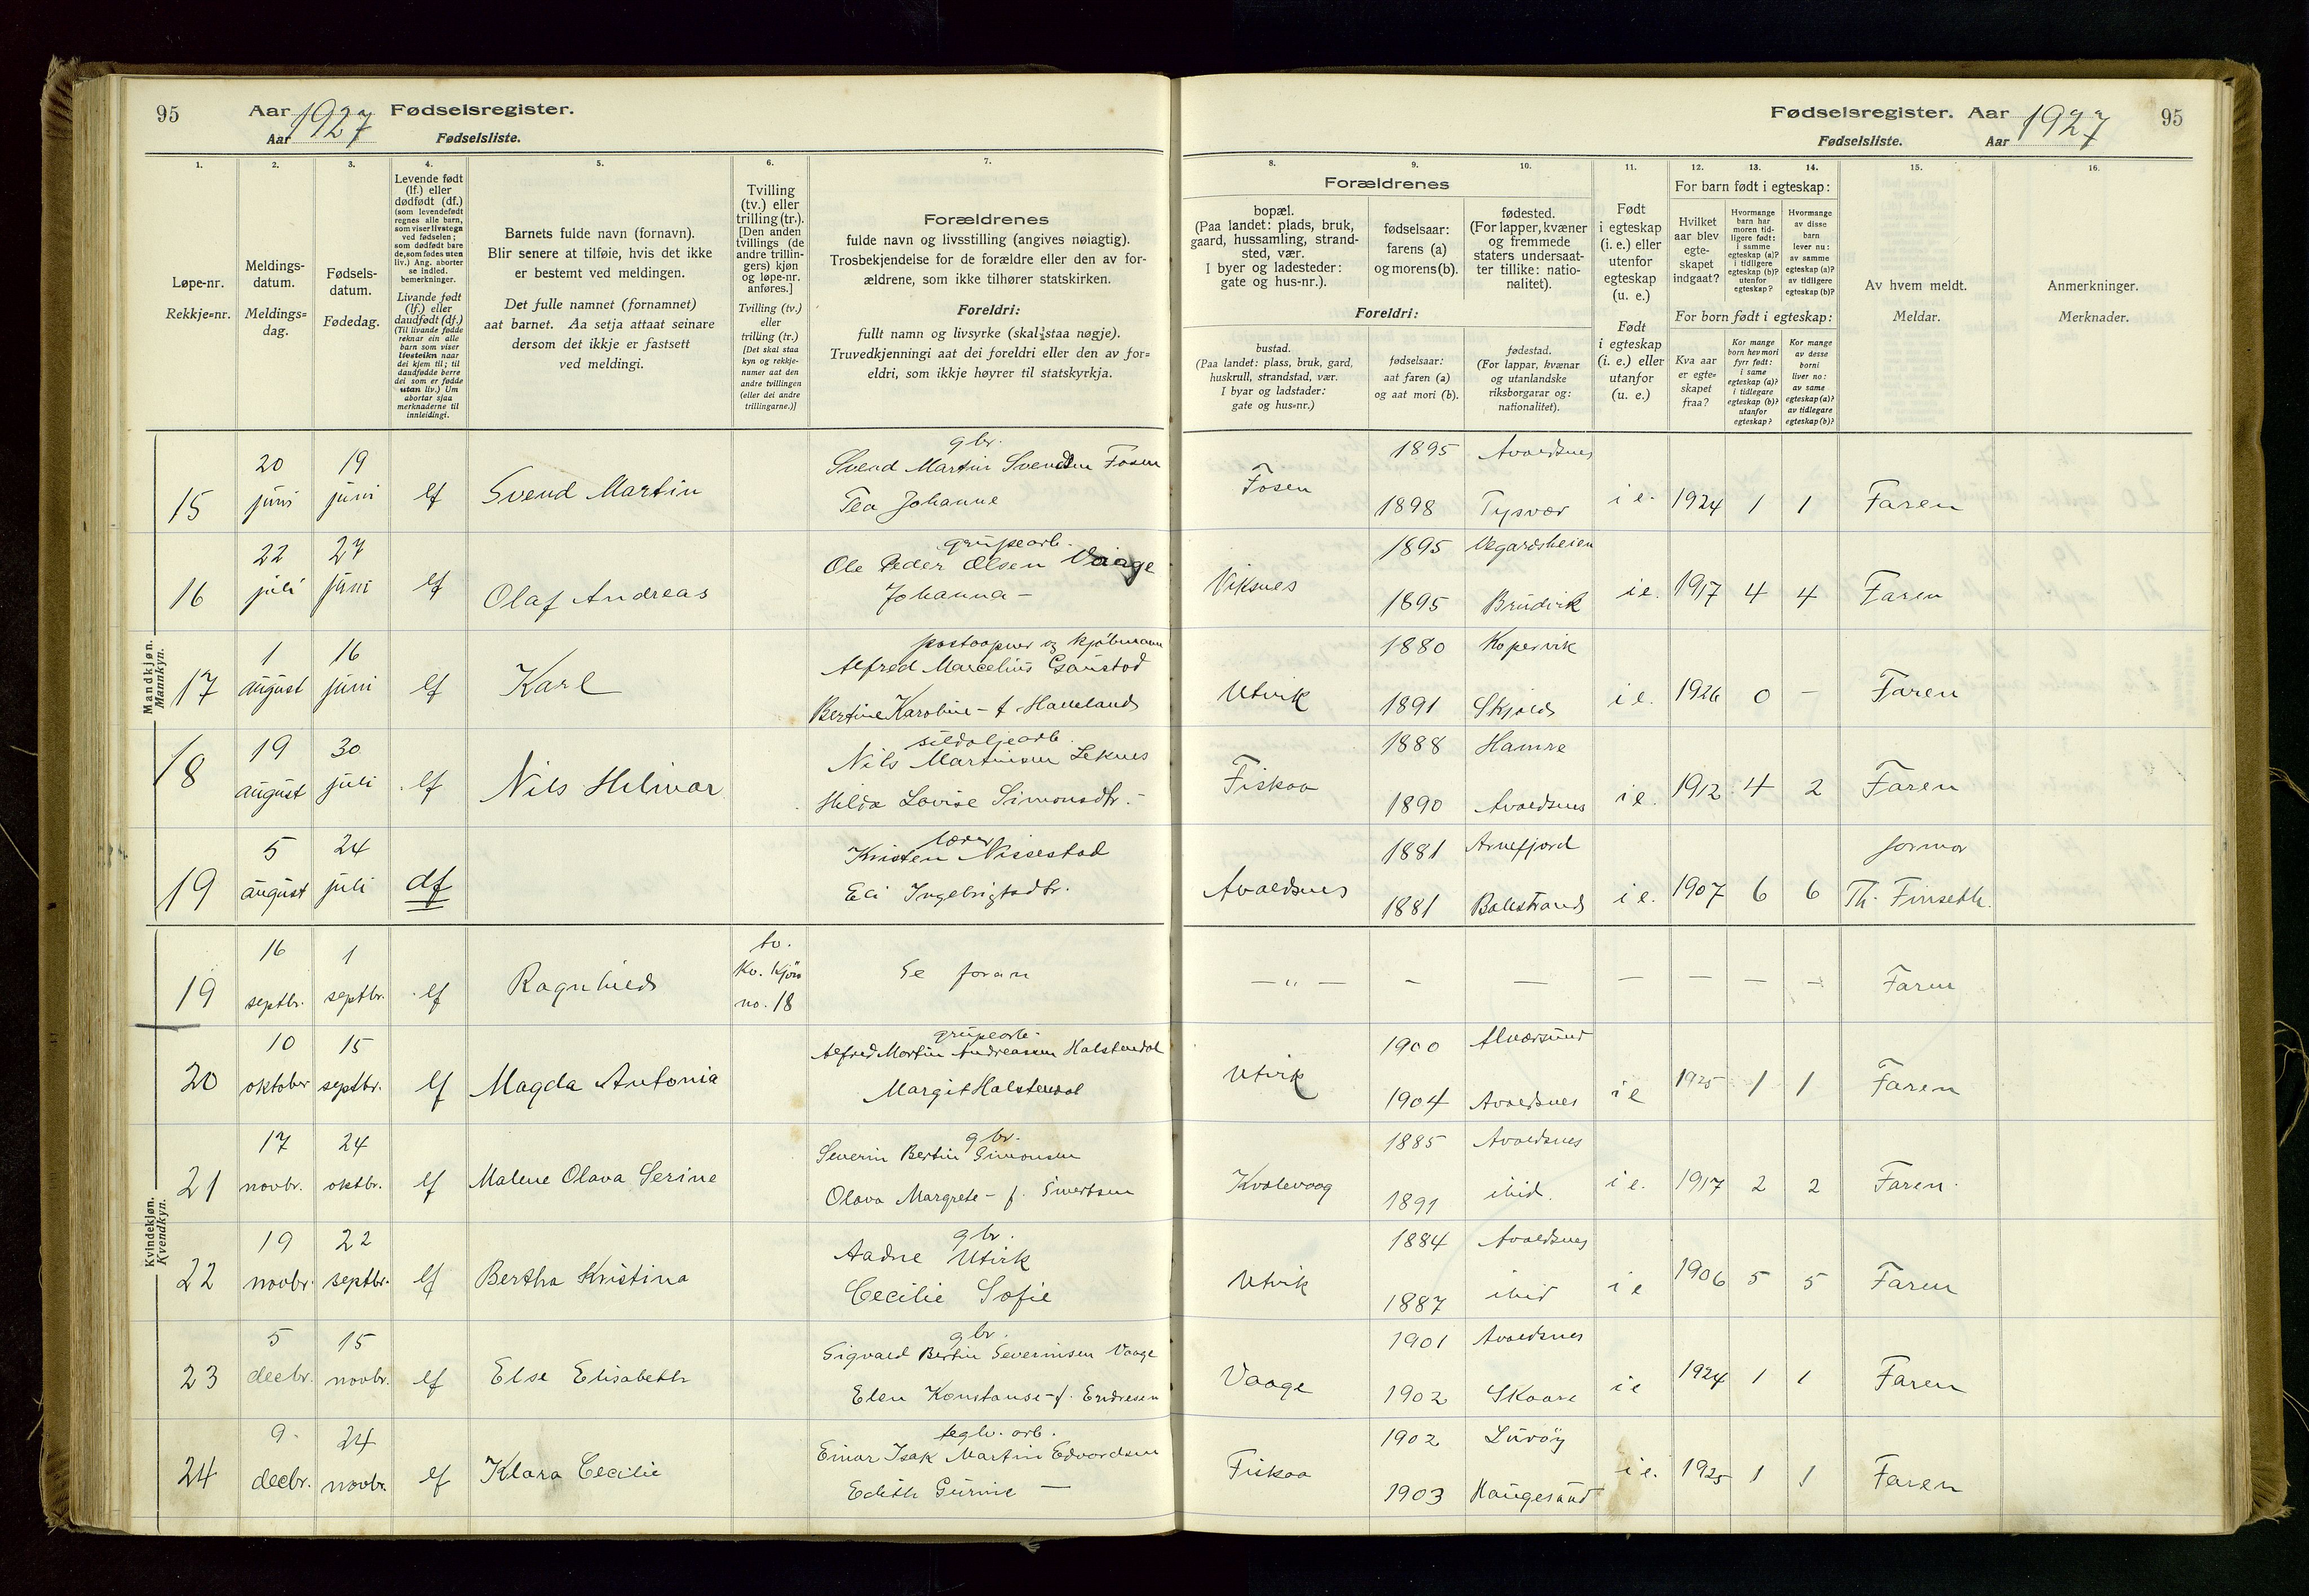 95 Aar 1927 Fødselsregister.
Aar Fødselsliste.
Fødselsregister. Aar 1927 95
Fødselsliste. Aar
1. 2. 3. 4. 5. 6. 7.
8. 9. 10. 11. 12. 13. 14. 15. 16.
Løpe-nr.
Rekkje=nr.
Meldings-
datum.
Meldings=
dag.
Fødsels-
datum.
Fødedag.
Levende født
(lf.) eller
dødfødt (df.)
(som levendefødt
regnes alle barn,
som viser livstegn
ved fødselen;
som dødfødt bare
de, som fødes uten
liv.) Ang. aborter
se indled.
bemerkninger.
Livande født
(lf.) eller
daudfødt (df.)
(Til livande fødde
reknar ein alle
barn som viser
livsteikn naar
dei kjem til; til
daudfødde berre
dei som er fødde
utan liv.) Um
abortar sjaa
merknaderne til
innleidingi.
Barnets fulde navn (fornavn).
Blir senere at tilføie, hvis det ikke
er bestemt ved meldingen.
Det fulle namnet (fornamnet)
aat barnet. Aa setja attaat seinare
dersom det ikkje er fastsett
ved meldingi.
Tvilling
(tv.) eller
trilling (tr.).
[Den anden
tvillings (de
andre trillin-
gers) kjøn
og løpe-nr.
anføres.]
Tvilling (tv.)
eller
trilling (tr.)
[Det skal staa
kyn og rekkje-
numer aat den
andre tvillingen
(eller dei andre
trillingarne.)]
Forældrenes
fulde navn og livsstilling (angives nøiagtig).
Trosbekjendelse for de forældre eller den av for-
ældrene, som ikke tilhører statskirken.
Foreldri:
fullt namn og livsyrke (skal staa nøgje).
Truvedkjenningi aat dei foreldri eller den av for=
eldri, som ikkje høyrer til statskyrkja.
Forældrenes
bopæl.
(Paa landet: plads, bruk,
gaard, hussamling, strand-
sted, vær.
I byer og ladesteder:
gate og hus-nr.).
fødselsaar:
farens (a)
og morens (b).
fødested.
(For lapper, kvæner
og fremmede
staters undersaat-
ter tillike: natio-
nalitet).
Foreldri:
bustad.
(Paa landet: plass, bruk, gard,
huskrull, strandstad, vær.
I byar og ladstader:
gate og hus-nr.)
fødselsaar:
aat faren (a)
og aat mori (b).
fødestad.
(For lappar, kvænar
og utanlandske
riksborgarar og:
nationalitet).
Født
i egteskap
(i. e.) eller
utenfor
egteskap
(u. e.)
Født
i egteskap
(i. e.) eller
utanfor
(u. e.)
For barn født i egteskap:
Hvilket
aar blev
egte-
skapet
indgaat?
Hvormange
barn har
moren tid-
ligere født:
i samme
egteskap (a)?
i tidligere
egteskap (b)?
utenfor
egteskap?
Hvormange
av disse
barn
lever nu:
av samme
egteskap (a)?
av tidligere
egteskap (b)?
For born født i egteskap:
Kva aar
er egte=
skapet
fraa?
Kor mange
born hev mori
fyrr født:
i same
egteskap (a)?
i tidlegare
egteskap (b)?
utanfor
egteskap?
Kor mange
av desse
borni
liver no:
av same
egteskap (a)?
av tidlegare
egteskap (b)?
Av hvem meldt.
Meldar.
Anmerkninger.
Merknader.
Mandkjøn.
Mannkyn.
gbr. 1895 Avaldsnes
20 19 Svend Martin Svendsen Fosen
15 juni juni lf Svend Martin Tea Johanne Fosen 1898 Tysvær i e. 1924 1 1 Faren
22 27 grubearb. 1895 Vegardsheien
Ole Peder Olsen Vaage
16 juli juni lf Olaf Andreas Johanna – Viksnes 1895 i e. 1917 4 4 Faren
1 16 postaapner og kjøbmann 1880 Kopervik
Alfred Marcelius Gaustad
17 august juni lf Karl Bertine Karoline – f. Haveland Utvik 1891 Skjold i e. 1926 0 – Faren
19 30 sildoljearb. 1888 Hamre
Nils Martinsen Leknes
18 august juli lf Nils Hilmar Hilda Lovise Simonsdtr. – Fiskaa 1890 Avaldsnes i e. 1912 4 2 Faren
5 24 lærer 1881 Arnefjord jormor
Kristen Nissestad
19 august juli df Eli Ingebrigtsdtr. Avaldsnes 1881 Balestrand i e. 1907 6 6 Th. Finseth.
Kvindekjøn.
Kvendkyn.
16 1 tv.
19 septbr. septbr. lf Ragnhild kv. kjøn no. 18 Se foran — " — – — — — — – Faren
10 15 grubearb. 1900 Alversund
Alfred Martin Andreassen Halstendal
20 oktober septbr. lf Magda Antonia Margit Halstendal Utvik 1904 Avaldsnes i e 1925 1 1 Faren
17 24 gbr. 1885 Avaldsnes
Severin Bertin Simonsen
21 novbr. oktbr. lf Malene Olava Serine Olava Margrete – f. Sivertsen Kvalevaag 1891 ibid. i e. 1917 2 2 Faren.
19 22 gbr. 1884 Avaldsnes
Aadne Utvik
22 novbr. septbr. lf Bertha Kristina Cecilie Sofie Utvik 1887 ibid i e 1906 5 5 Faren
5 15 gbr. 1901 Avaldsnes
Sigvald Bertin Severinsen Vaage
23 decbr. novbr. lf Else Elisabeth Elen Konstanse – f. Endresen Vaage 1902 Skaare i e 1924 1 1 Faren
9. 24 teglv. arb. 1902 Lurøy
Einar Isak Martin Edvardsen
24 decbr. novbr. lf Klara Cecilie Edith Gurine — Fiskaa 1903 Haugesund i e. 1925 1 1 Faren